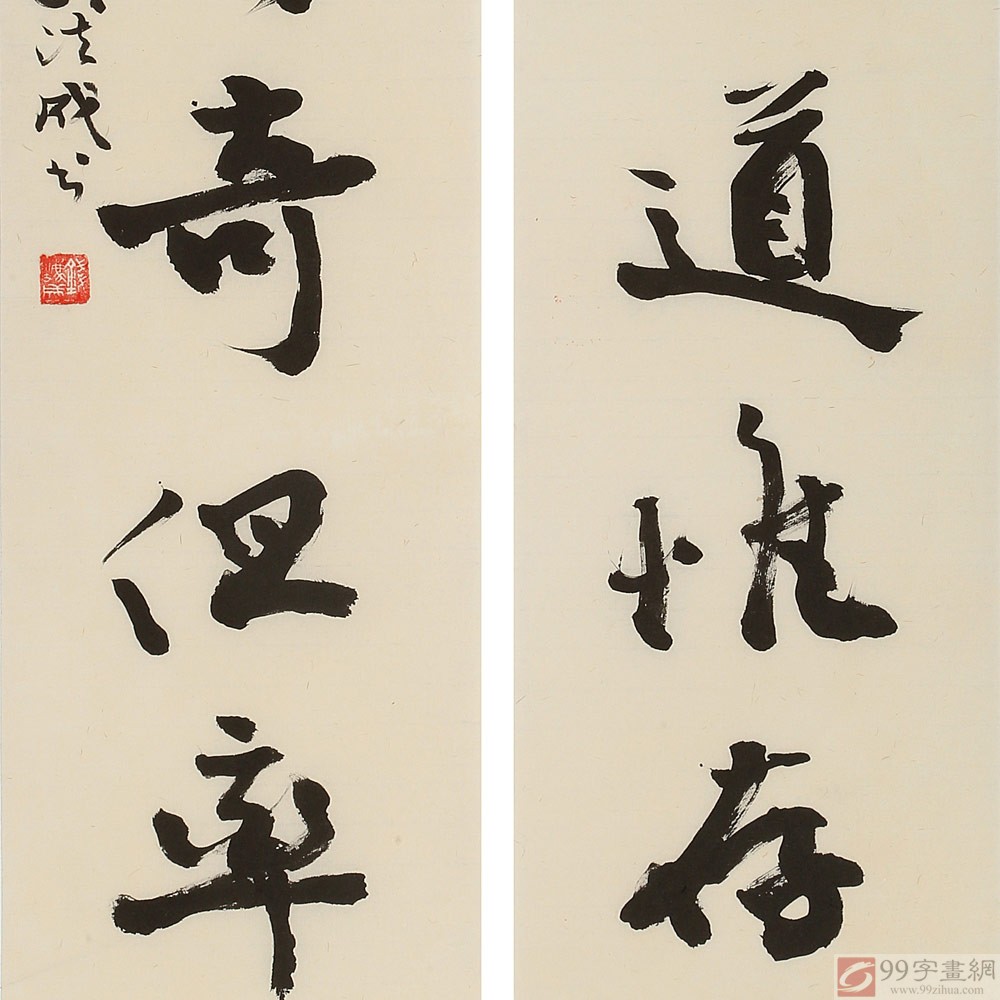 道惟存
奇但率
法成书
99字畫網
www.99zihua.com